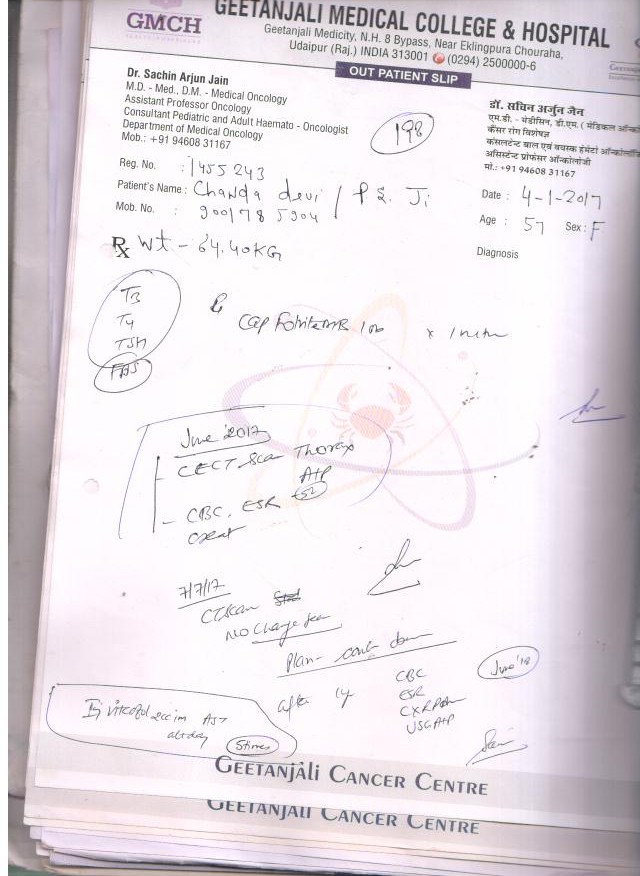 GMCH
GEETANJALI MEDICAL COLLEGE & HOSPITAL
Geetanjali Medicity, N.H. 8 Bypass, Near Eklingpura Chouraha,
Udaipur (Raj.) INDIA 313001 (0294) 2500000-6
OUT PATIENT SLIP
Dr. Sachin Arjun Jain
M.D. - Med., D.M. - Medical Oncology
Assistant Professor Oncology
Consultant Pediatric and Adult Haemato - Oncologist
Department of Medical Oncology
Mob.: +91 94608 31167
198
डॉ. सचिन अर्जुन जैन
एम.डी. - मेडीसिन, डी.एम. ( मेडिकल
कैंसर रोग विशेषज्ञ
कंसलटेन्ट बाल एवं वयस्क हेमेटो
असिस्टेन्ट प्रोफेसर ऑन्कोलॉजी
मो.: +91 94608 31167
Reg. No. : 1455243
Patient's Name : Chanda devi / P. S. Ji
Mob. No. : 9001785904
Date : 4-1-2017
Age : 57 Sex: F
Rx Wt - 64.40KG
Diagnosis
T3
T4
TSH
Cap
June 2017
- CECT Scan Thorax
- CBC, ESR
Creat
7/7/17
CT Scan
No Change
Plan-
after 1y
CBC
ESR
USG A+P
June '18
Inj 2cc im
altday
5 times
GEETANJALI CANCER CENTRE
GEETANJALI CANCER CENTRE